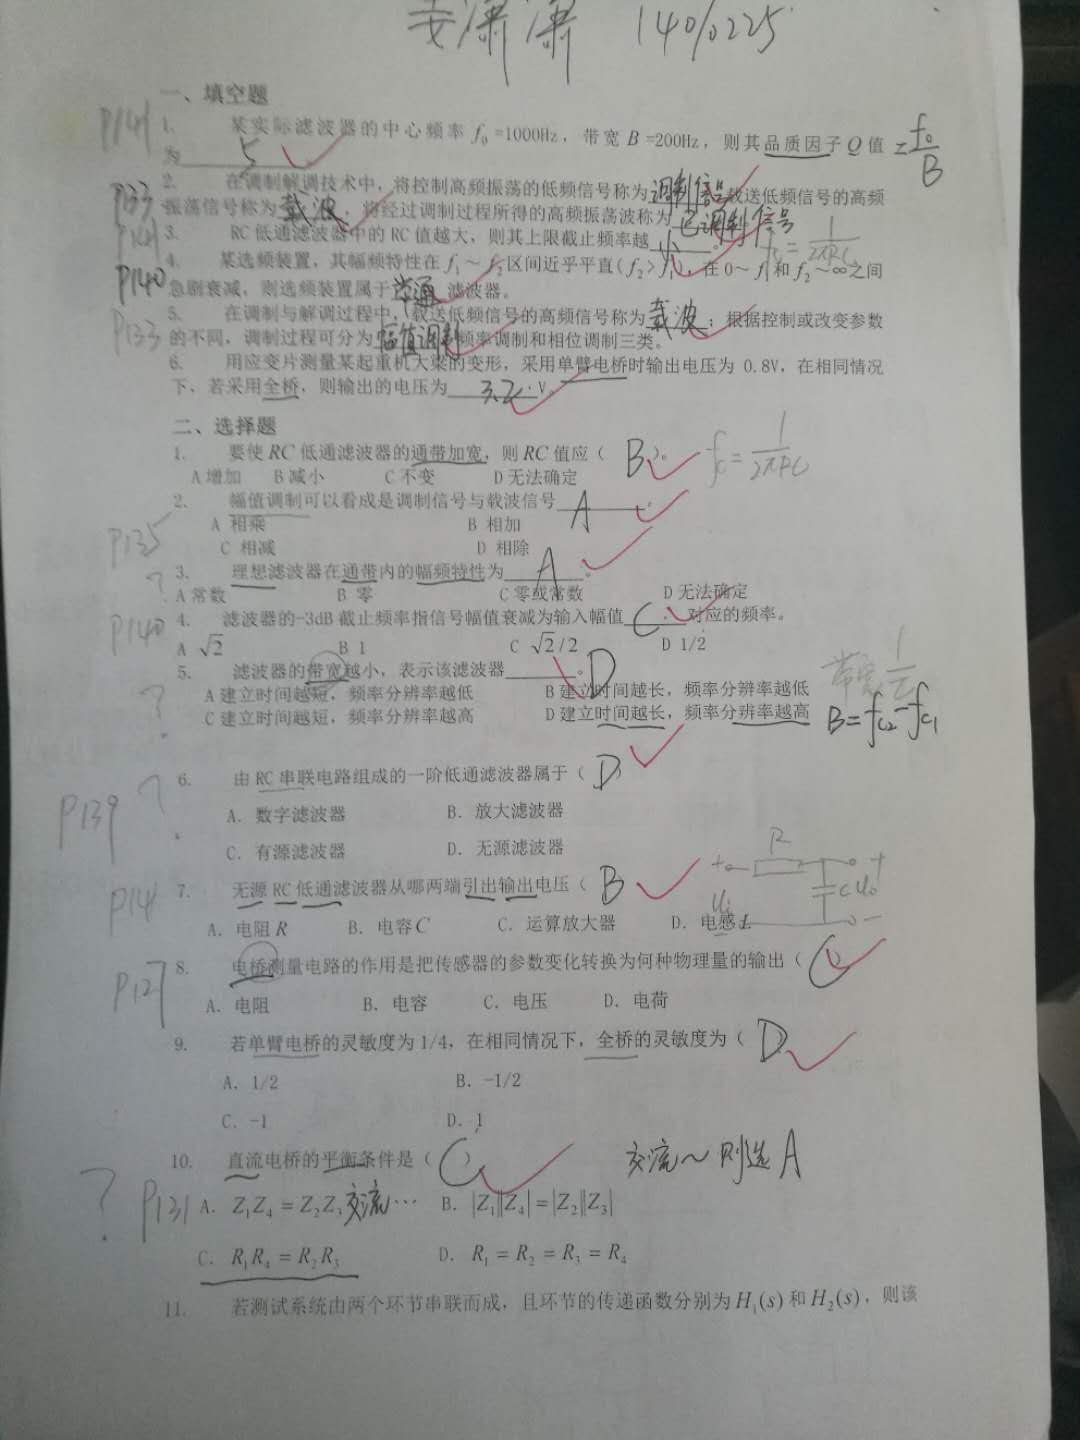 姜潇潇 14010225
一、填空题
P141
1. 某实际滤波器的中心频率 f₀=1000Hz，带宽 B=200Hz，则其品质因子 Q 值 = f₀/B
为 5
2. 在调制解调技术中，将控制高频振荡的低频信号称为 调制信号 载送低频信号的高频
P133 振荡信号称为 载波；将经过调制过程所得的高频振荡波称为 已调制信号
P141 3. RC 低通滤波器中的 RC 值越大，则其上限截止频率越 小。 fc = 1/2πRC
4. 某选频装置，其幅频特性在 f₁～f₂区间近乎平直(f₂>f₁)，在 0～f₁和 f₂～∞之间
P140 急剧衰减，则选频装置属于 带通 滤波器。
5. 在调制与解调过程中，载送低频信号的高频信号称为 载波；根据控制或改变参数
P133 的不同，调制过程可分为 幅值调制 频率调制和相位调制三类。
6. 用应变片测量某起重机大梁的变形，采用单臂电桥时输出电压为 0.8V，在相同情况
下，若采用全桥，则输出的电压为 3.2 V。
二、选择题
1. 要使 RC 低通滤波器的通带加宽，则 RC 值应（ B ）。 fc = 1/2πRC
A 增加 B 减小 C 不变 D 无法确定
2. 幅值调制可以看成是调制信号与载波信号 A 。
A 相乘 B 相加
P135 C 相减 D 相除
3. 理想滤波器在通带内的幅频特性为 A 。
? A 常数 B 零 C 零或常数 D 无法确定
P140 4. 滤波器的-3dB 截止频率指信号幅值衰减为输入幅值 C 对应的频率。
A √2 B 1 C √2/2 D 1/2
5. 滤波器的带宽越小，表示该滤波器 D 。
? A 建立时间越短，频率分辨率越低 B 建立时间越长，频率分辨率越低
C 建立时间越短，频率分辨率越高 D 建立时间越长，频率分辨率越高 B = fc2 - fc1
6. 由 RC 串联电路组成的一阶低通滤波器属于（ D ）
P139 ? A. 数字滤波器 B. 放大滤波器
C. 有源滤波器 D. 无源滤波器
7. 无源 RC 低通滤波器从哪两端引出输出电压（ B ）
P14 A. 电阻 R B. 电容 C C. 运算放大器 D. 电感 L
+ R + Ui C Uo −
8. 电桥测量电路的作用是把传感器的参数变化转换为何种物理量的输出（ C ）
P127 A. 电阻 B. 电容 C. 电压 D. 电荷
9. 若单臂电桥的灵敏度为 1/4，在相同情况下，全桥的灵敏度为（ D
A. 1/2 B. -1/2
C. -1 D. 1
10. 直流电桥的平衡条件是（ C ） 交流～则选A
? P131 A. Z₁Z₄ = Z₂Z₃ 交流… B. |Z₁||Z₄| = |Z₂||Z₃|
C. R₁R₄ = R₂R₃ D. R₁ = R₂ = R₃ = R₄
11. 若测试系统由两个环节串联而成，且环节的传递函数分别为 H₁(s) 和 H₂(s)，则该